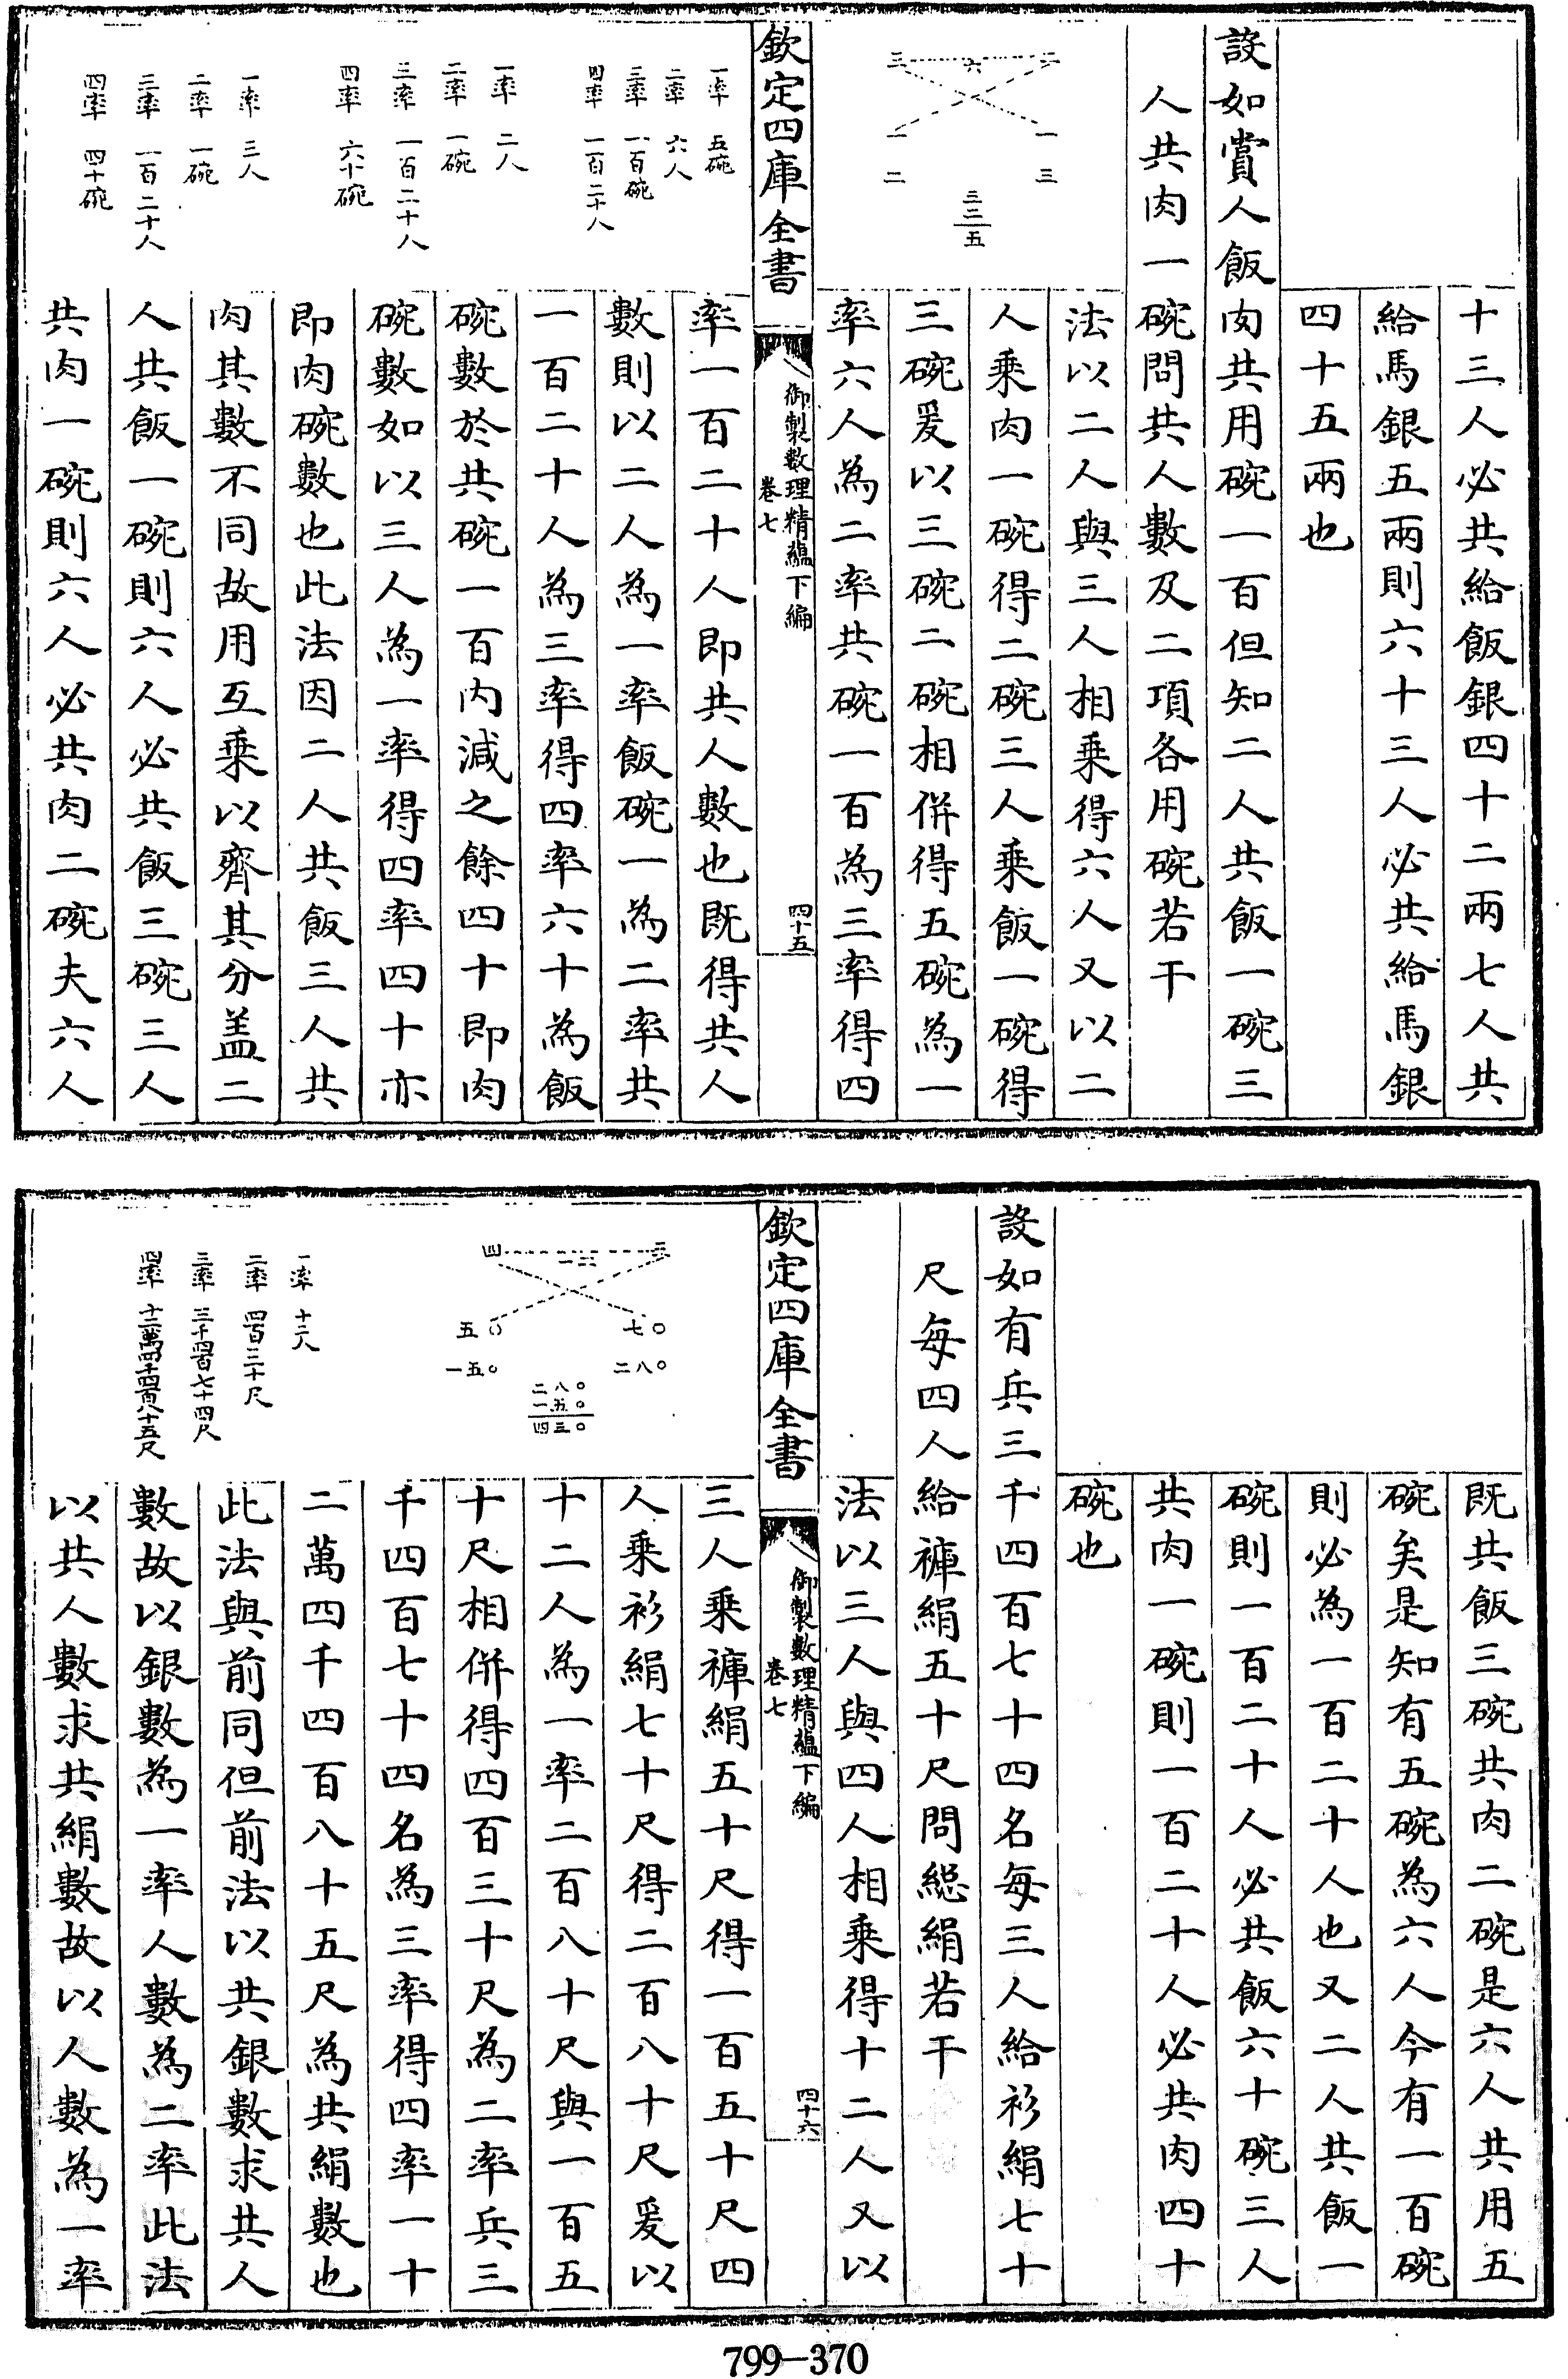 十三人必共給飯銀四十二兩七人共
給馬銀五兩則六十三人必共給馬銀
四十五兩也
設如賞人飯肉共用碗一百但知二人共飯一碗三
人共肉一碗問共人數及二項各用碗若干
法以二人與三人相乘得六人又以二
人乘肉一碗得二碗三人乘飯一碗得
三碗爰以三碗二碗相併得五碗為一
率六人為二率共碗一百為三率得四
二 六 三
一 一
三 二
三
二
五
欽定四庫全書
御製數理精蘊下編
卷七
四十五
率一百二十人即共人數也既得共人
數則以二人為一率飯碗一為二率共
一百二十人為三率得四率六十為飯
碗數於共碗一百內減之餘四十即肉
碗數如以三人為一率得四率四十亦
即肉碗數也此法因二人共飯三人共
肉其數不同故用互乘以齊其分盖二
人共飯一碗則六人必共飯三碗三人
共肉一碗則六人必共肉二碗夫六人
一率 五碗
二率 六人
三率 一百碗
四率 一百二十人
一率 二人
二率 一碗
三率 一百二十人
四率 六十碗
一率 三人
二率 一碗
三率 一百二十人
四率 四十碗
既共飯三碗共肉二碗是六人共用五
碗矣是知有五碗為六人今有一百碗
則必為一百二十人也又二人共飯一
碗則一百二十人必共飯六十碗三人
共肉一碗則一百二十人必共肉四十
碗也
設如有兵三千四百七十四名每三人給衫絹七十
尺每四人給褲絹五十尺問總絹若干
法以三人與四人相乘得十二人又以
欽定四庫全書
御製數理精蘊下編
卷七
四十六
三人乘褲絹五十尺得一百五十尺四
人乘衫絹七十尺得二百八十尺爰以
十二人為一率二百八十尺與一百五
十尺相併得四百三十尺為二率兵三
千四百七十四名為三率得四率一十
二萬四千四百八十五尺為共絹數也
此法與前同但前法以共銀數求共人
數故以銀數為一率人數為二率此法
以共人數求共絹數故以人數為一率
四 一二 三
五〇 七〇
一五〇 二八〇
二八〇
一五〇
四三〇
一率 十二人
二率 四百三十尺
三率 三千四百七十四尺
四率 十二萬四千四百八十五尺
799-370